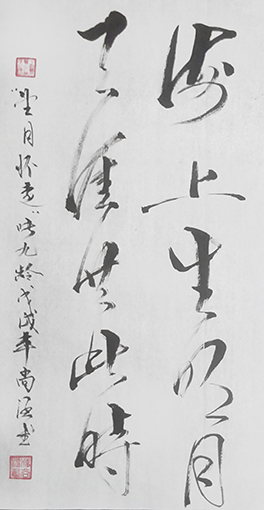 海上生明月
天涯共此时
"望月怀远"唐九龄戊戌年尚